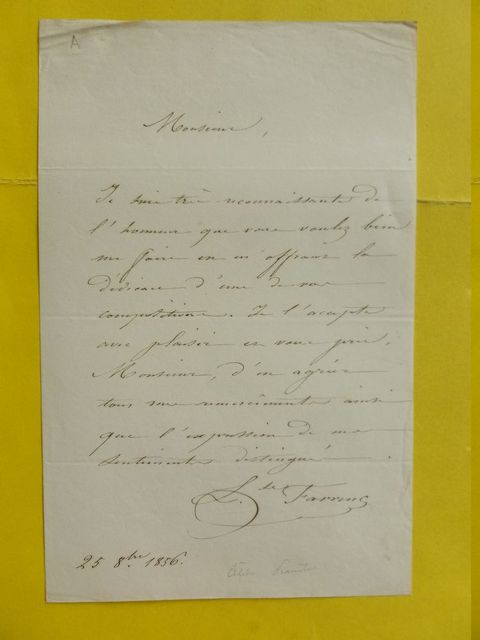 A
Monsieur,
Je suis très reconnaissante de
l'honneur que vous voulez bien
me faire en m'offrant la
dédicace d'une de vos
compositions. Je l'accepte
avec plaisir et vous prie,
Monsieur, d'en agréer
tous mes remerciements ainsi
que l'expression de mes
sentiments distingués.
L. Farrenc
25 8.bre 1856.